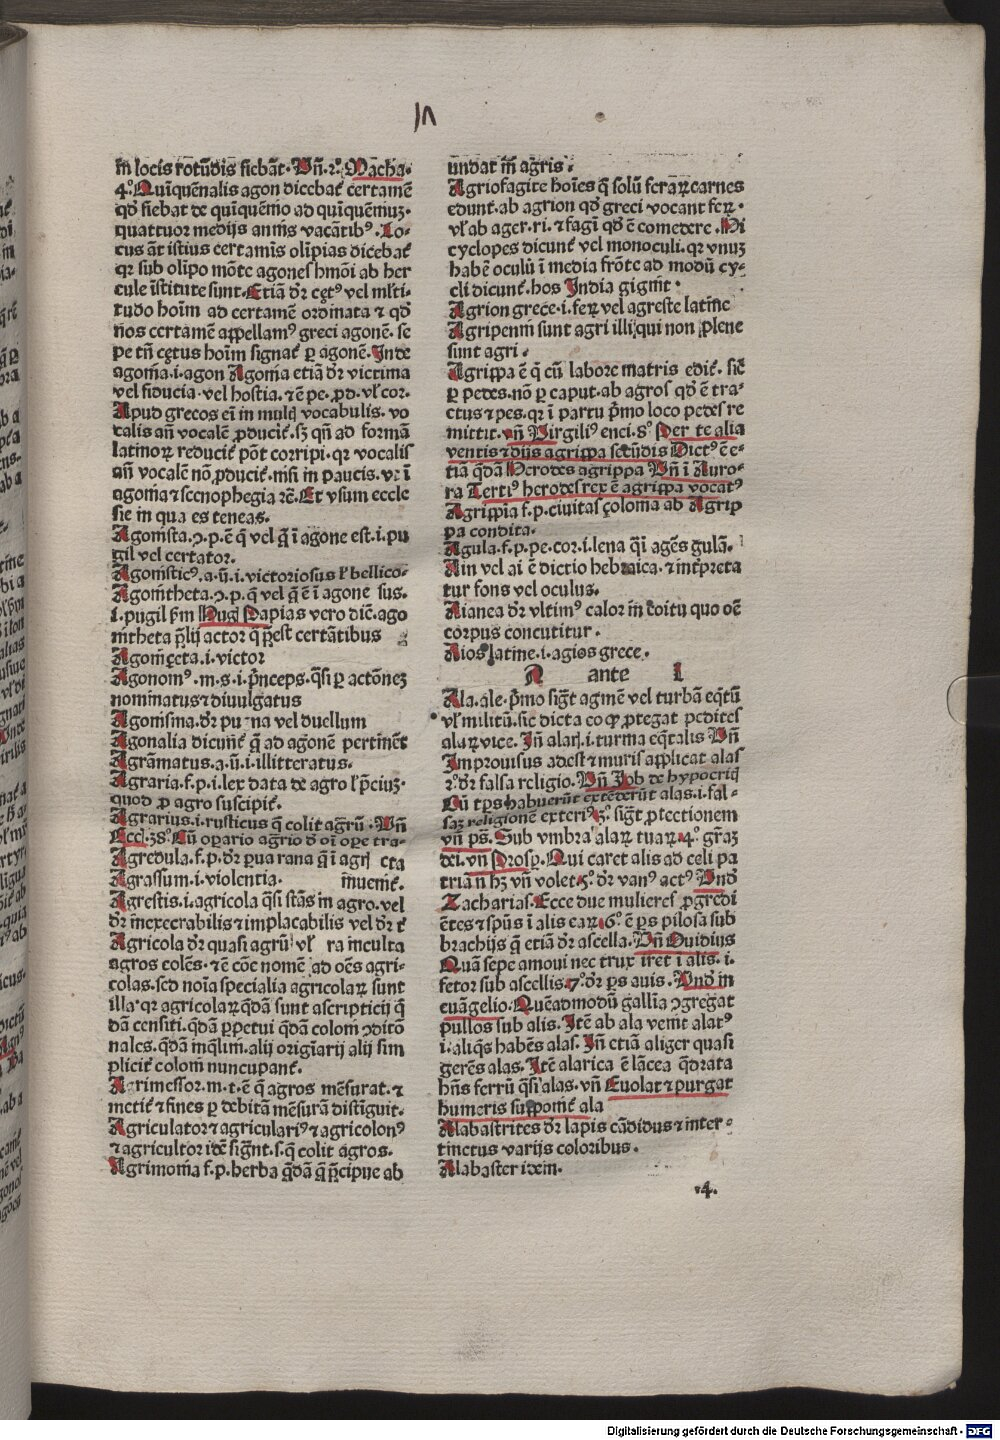 in locis rotūdis fiebāt. Vñ .2º. Macha.
4º. Quīquēnalis agon dicebat᷑ certamē
qd̄ fiebat de quīquēnio ad quīquēniuꝫ.
quattuor medijs annis vacātibꝰ. Lo-
cus āt istius certamīs olīpias dicebat᷑
qꝛ sub olīpo mōte agones hmōi ab her
cule īstitute sunt. Etiā dr̄ cetꝰ vel mlti-
tudo hoīm ad certamē ordinata ⁊ qd̄
nos certamē appellamꝰ greci agonē. se
pe tñ cętus hoīm signat᷑ ꝑ agonē. Inde
agonia .i. agon Agonia etiā dr̄ victima
vel fiducia. vel hostia. ⁊ ē pe. ꝓd. vl̄ cor.
Apud grecos eī in mult᷑ vocabulis. vo
calis añ vocalē ꝓducit᷑. sꝫ qñ ad formā
latinoꝝ reducit᷑ pōt corripi. qꝛ vocalis
añ vocalē nō ꝓducit᷑. nisi in paucis. vt ī
agonia ⁊ scenophegia ⁊c̄. Et vsum eccle
sie in qua es teneas.
Agonista. ꝯ. p. ē q̄ vel q̄ ī agone est .i. pu
gil vel certator.
Agonisticꝰ. a. ū. i. victoriosus vl̄ bellico-
Agonitheta. ꝯ. p. q̄ vel q̄ ē ī agone sus.
.i. pugil s̄m Hug᷑ Papias vero dic̄. ago
nitheta p̄lij actor q̄ p̄est certātibus
Agoniçeta .i. victor
Agonomꝰ. m. s. i. p̄nceps. q̄si ꝑ actōneꝫ
nominatus ⁊ diuulgatus
Agonisma. dr̄ pu na vel duellum
Agonalia dicunt᷑ q̄ ad agonē pertinēt
Agrāmatus. a. ū. i. illitteratus.
Agraria. f. p. i. lex data de agro l᷑ p̄ciuꝫ.
quod ꝓ agro suscipit᷑.
Agrarius .i. rusticus q̄ colit agrū. Vñ
Eccl. 38º. Cū operario agrio d̄ oī ope tra-
Agredula. f. p. dr̄ parua rana q̄ ī agr᷑ cta
Agrassum .i. violentia. īuenit᷑.
Agrestis .i. agricola q̄si stās in agro. vel
dr̄ īnexecrabilis ⁊ implacabilis vel dr̄
Agricola dr̄ quasi agrū vl᷑ ra inculta
agros colēs. ⁊ ē cōe nomē ad oēs agri-
colas. sed noīa specialia agricolaꝝ sunt
illa. qꝛ agricolaꝝ q̄dā sunt ascripticij q̄
dā censiti. q̄dā ꝑpetui q̄dā coloni ꝯditō
nales. q̄dā inq̄lini. alij origīarij alij sim
plicit᷑ coloni nuncupant᷑.
Agrimessor. m. t. ē q̄ agros mēsurat. ⁊
metit᷑ ⁊ fines ꝑ debitā mēsurā distīguit.
Agriculator ⁊ agriculariꝰ ⁊ agricolonꝰ
⁊ agricultor idē sign̄t. s. q̄ colit agros.
Agrimonia f. p. herba q̄dā q̄ p̄cipue ab
undat in̄ agris.
Agriofagite hoīes q̄ solū feraꝝ carnes
edunt. ab agrion qd̄ greci vocant feꝝ.
vl̄ ab ager. ri. ⁊ fagī qd̄ ē comedere. Hi
cyclopes dicunt᷑ vel monoculi. qꝛ vnuꝫ
habēt oculū ī media frōte ad modū cy-
cli dicunt᷑. hos India gignit.
Agrion grece .i. feꝝ vel agreste latine
Agripenni sunt agri illi qui non plene
sunt agri.
Agrippa ē q̄ cū labore matris edit᷑. sic̄
ꝑ pedes. nō ꝑ caput. ab agros qd̄ ē tra-
ctus ⁊ pes. qꝛ ī partu p̄mo loco pedes re
mittit. vñ Virgiliꝰ enei. 8º Per te alia
ventis ⁊ dijs agrippa secūdis Dictꝰ ē e-
tiā q̄dā Herodes agrippa Vñ ī Auro-
ra Tertiꝰ herodes rex ē agrippa vocatꝰ
Agrippia f. p. ciuitas çolonia ab Agrip
pa condita.
Agula. f. p. pe. cor. i. lena q̄i agēs gulā.
Ain vel ai ē dictio hebraica. ⁊ intp̄reta
tur fons vel oculus.
Aianea dr̄ vltimꝰ calor in coitu quo oē
corpus concutitur.
Aios latine .i. agios grece.
A ante l
Ala. ale. p̄mo sigt᷑ agmē vel turbā eq̄tū
vl̄ militū. sic dicta eo q ꝓtegat pedites
alaꝝ vice. Iñ alarꝭ .i. turma eq̄talis Vñ
Improuisus adest ⁊ muris applicat alas
2º. dr̄ falsa religio. Vñ Job de hypocritꝭ
Cū tp̄s habuerūt extēderūt alas .i. fal-
saꝫ religionē exteriꝰ. 3º. sigt᷑ ꝓtectionem
vñ ps̄. Sub vmbra alaꝝ tuaꝝ. 4º. gr̄aꝫ
dei. vñ Prosp᷑. Qui caret alis ad celi pa
triā n̄ hꝫ vñ volet. 5º. dr̄ vanꝰ actꝰ Vnd̄
Zacharias. Ecce due mulieres ꝓgredi
ētes ⁊ spūs ī alis eaꝝ. 6º. ē ps pilosa sub
brachijs q̄ etiā dr̄ ascella. Vñ Ouidius
Quā sepe amoui nec trux iret ī alis .i.
fetor sub ascellis. 7º. dr̄ ps auis. Vnd̄ in
euāgelio. Quēadmodū gallīa ꝯgregat
pullos sub alis. Itē ab ala venit alatꝰ
.i. aliq̄s habēs alas. Iñ etiā aliger quasi
gerēs alas. Itē alarica ē lācea q̄drata
hñs ferrū q̄si alas. vñ Euolat ⁊ purgat
humeris supponit᷑ ala
Alabastrites dr̄ lapis cādidus ⁊ inter-
tinctus varijs coloribus.
Alabaster idem.
.4.
Digitalisierung gefördert durch die Deutsche Forschungsgemeinschaft - DFG